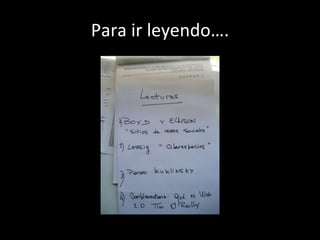 Para ir leyendo....
Lecturas
1) BOYD Y ELLISON
"Sitios de redes sociales"
2) Lessig "Ciberespacios"
3) KUKLINSKY
4) Complementaria: Qué es Web
2.0 Tim O'Reilly